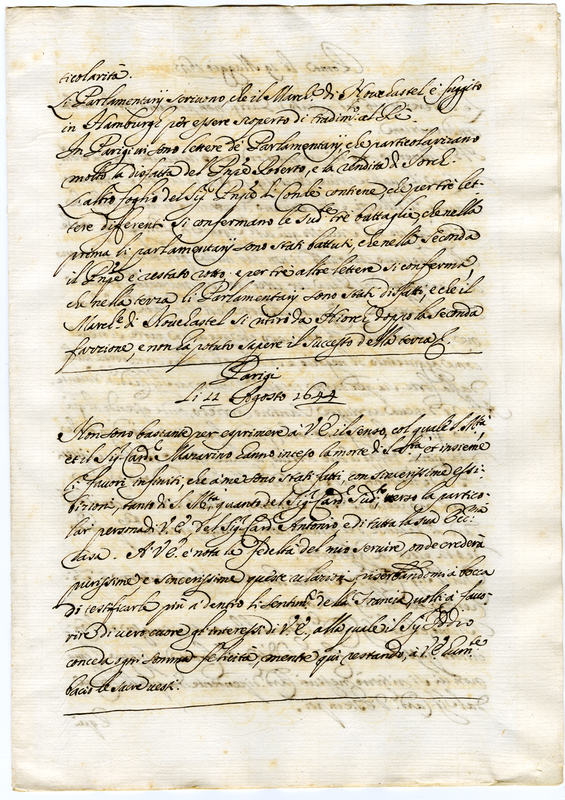 ticolarità.
Li Parlamentarij scrivono che il March.e di Nouchastel è fuggito
in Hamburgo per essere scoperto di tradim.to al Rè.
In Parigi vi sono lettere de Parlamentarij, che particolarizano
molto la disfatta del Prnpe Roberto, e la rendita di Jorch.
L'altro foglio del Sig.r Prnpe di Condè contiene, che per trè let-
tere differenti si confermano le Sud.e trè battaglie, che nella
prima li parlamentarij sono stati battuti, che nella seconda
il Prnpe è restato rotto, e per trè altre lettere si conferma,
che nella terza li Parlamentarij sono stati disfatti, e che il
March.e di Nouchastel si ritirò da doppo la seconda
fazzione, e non hà potuto sapere il successo della terza &.
Parigi
Li 11 Agosto 1644
Non sono bastante per esprimere à V.E. il senso, col quale S. M.tà,
et il Sig.r Card.e Mazarino hanno inteso la morte di S. S.tà, et insieme
li favori infiniti, che à me sono stati fatti, con sincerissime essi-
bizioni, tanto di S. M.tà, quanto del Sig.r Card.e Sud.o, verso la partico-
lar persona di V.E. Del Sig.r Card.e Antonio e di tutta la sua Ecc.ma
Casa. A V.E. è nota la fedeltà del mio servire, onde crederà
purissime e sincerissime queste riserbandomi à bocca
di testificarla più a dentro li sentim.ti della Francia, volti à favo-
rire di vero cuore gl'interessi di V.E., alla quale il Sig.r Iddio
conceda ogni somma felicità, mentre qui restando, à V.E. hum.te
bacio le sacre vesti.